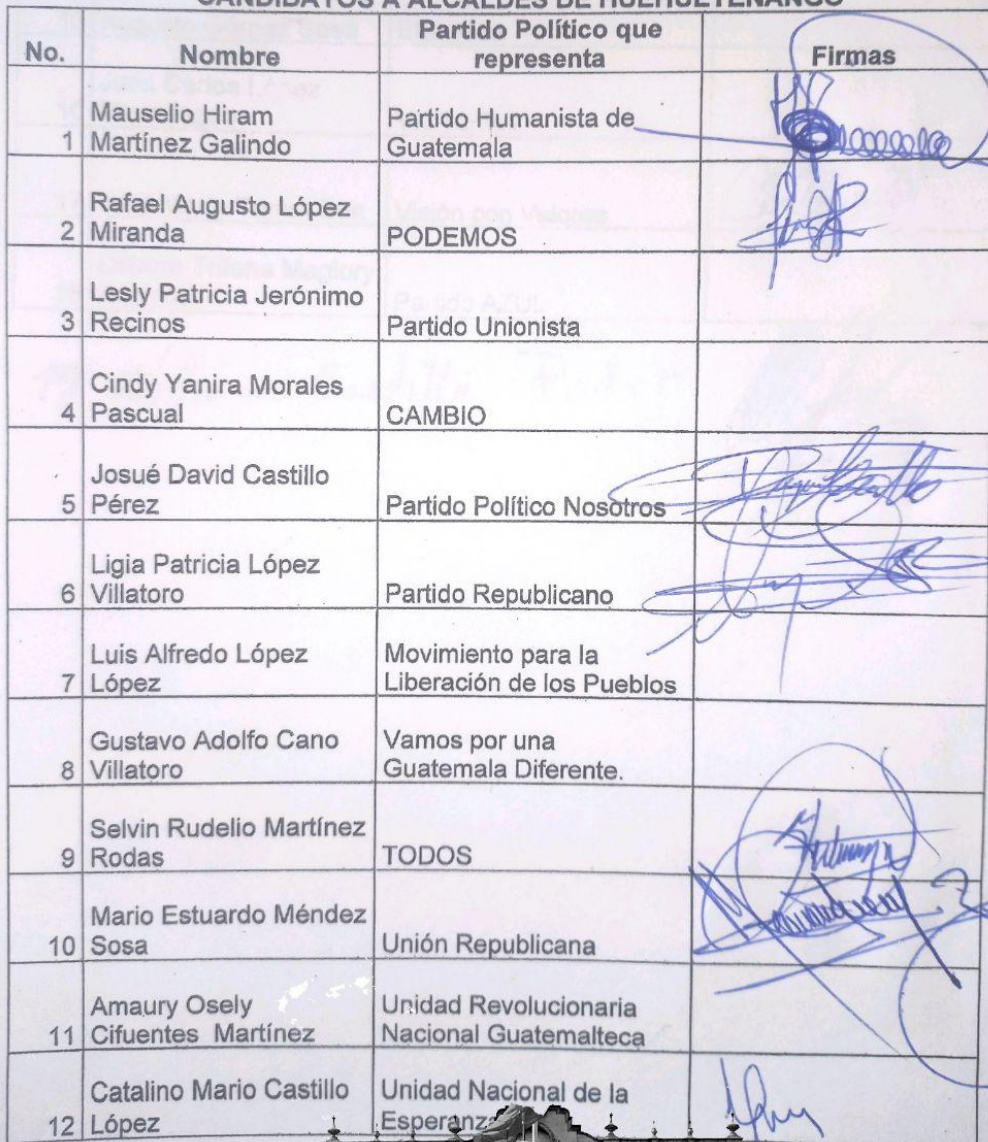 CANDIDATOS A ALCALDES DE HUEHUETENANGO
No. Nombre Partido Político que representa Firmas
1 Mauselio Hiram Martínez Galindo Partido Humanista de Guatemala
2 Rafael Augusto López Miranda PODEMOS
3 Lesly Patricia Jerónimo Recinos Partido Unionista
4 Cindy Yanira Morales Pascual CAMBIO
5 Josué David Castillo Pérez Partido Político Nosotros
6 Ligia Patricia López Villatoro Partido Republicano
7 Luis Alfredo López López Movimiento para la Liberación de los Pueblos
8 Gustavo Adolfo Cano Villatoro Vamos por una Guatemala Diferente.
9 Selvin Rudelio Martínez Rodas TODOS
10 Mario Estuardo Méndez Sosa Unión Republicana
11 Amaury Osely Cifuentes Martínez Unidad Revolucionaria Nacional Guatemalteca
12 Catalino Mario Castillo López Unidad Nacional de la Esperanza